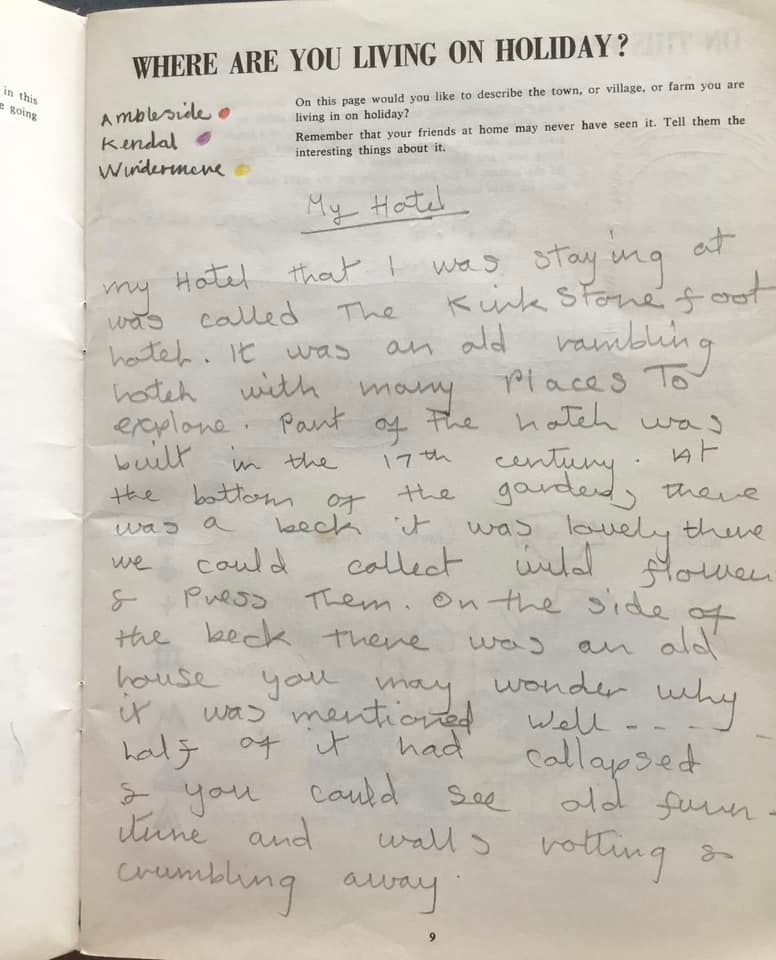 in this
e going
WHERE ARE YOU LIVING ON HOLIDAY?
On this page would you like to describe the town, or village, or farm you are
living in on holiday?
Remember that your friends at home may never have seen it. Tell them the
interesting things about it.
Ambleside
Kendal
Windermere
My Hotel
my Hotel that I was staying at
was called The Kirk Stone foot
hotel. It was an old rambling
hotel with many Places To
explore. Part of The hotel was
built in the 17th century. At
the bottom of the gardens there
was a beck it was lovely there
we could collect wild flower
& Press Them. On the side of
the beck there was an old
house you may wonder why
it was mentioned well - - - - -
half of it had collapsed
& you could see old furn-
iture and walls rotting &
crumbling away.
9